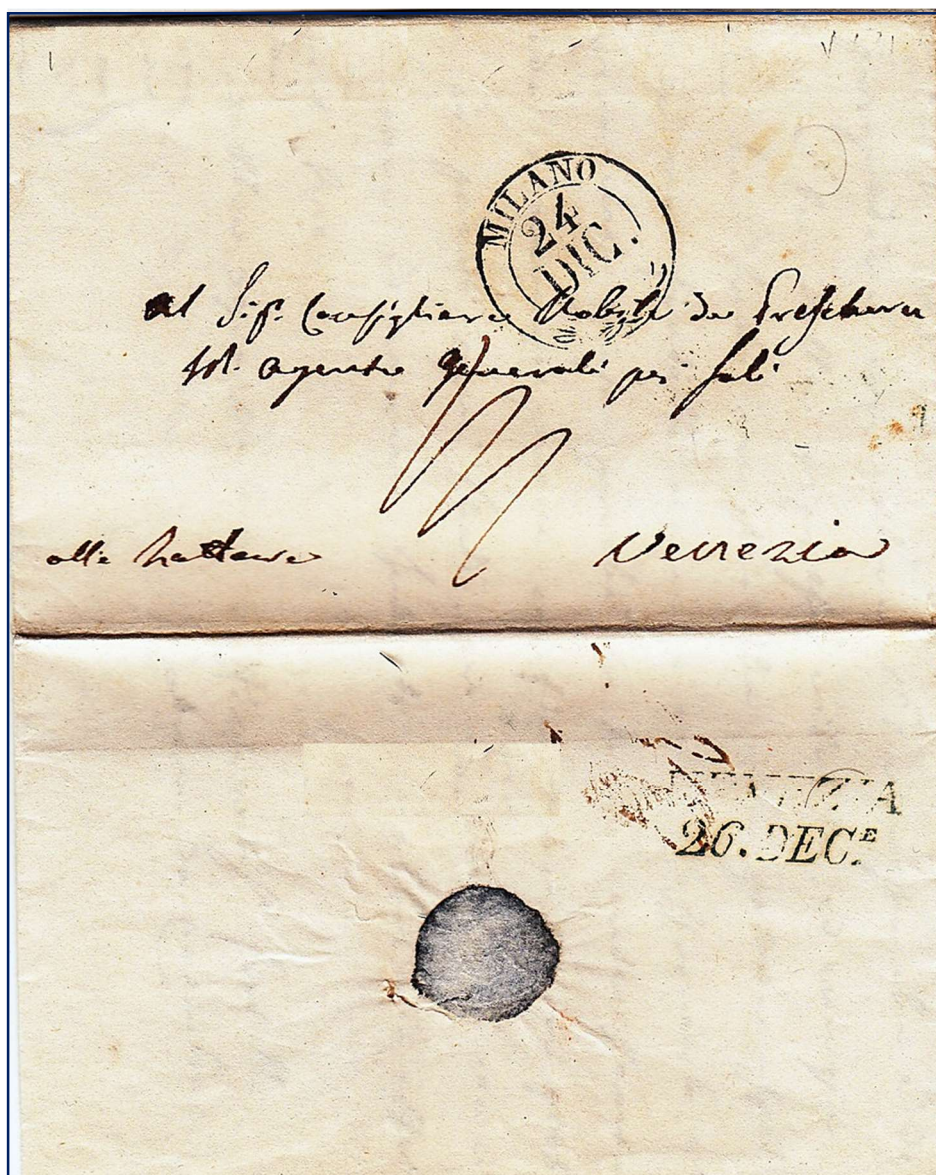 MILANO
24
DIC.
al Sigr. Consigliere Nobile de
agente generale pei sali
alle Zattere Venezia
VENEZIA
26. DECE.